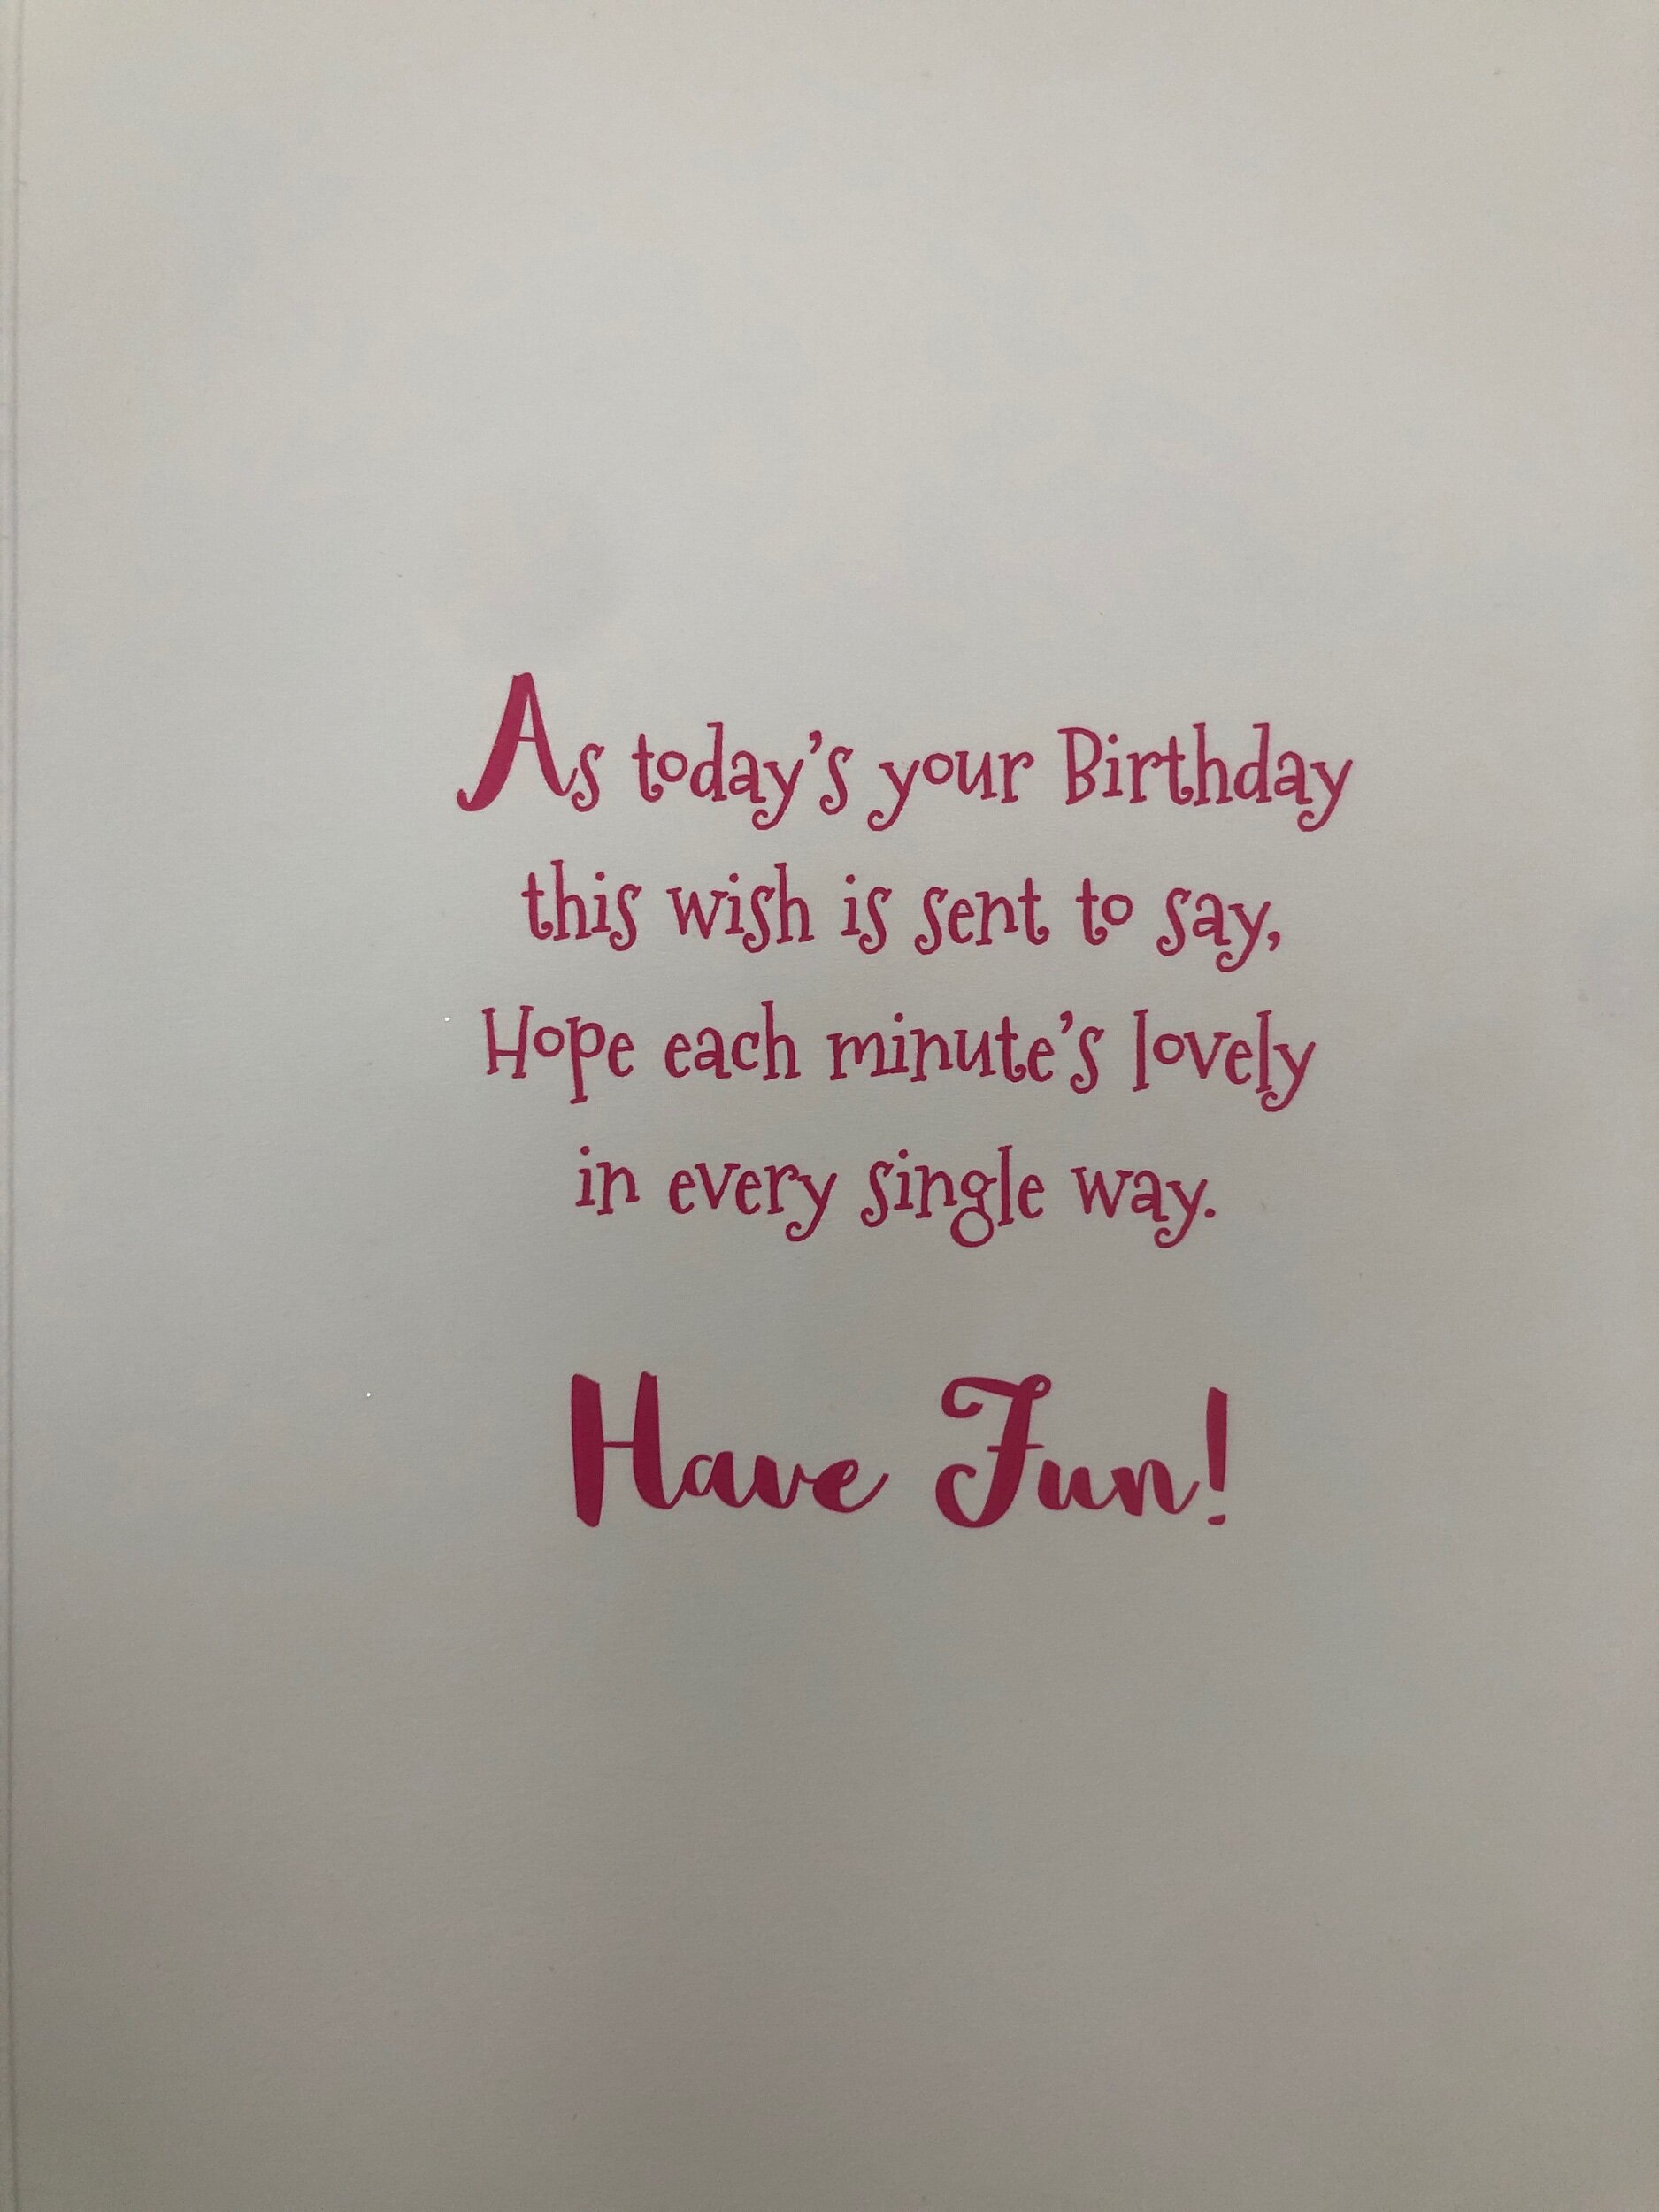 As today's your Birthday
this wish is sent to say,
Hope each minute's lovely
in every single way.
Have Fun!